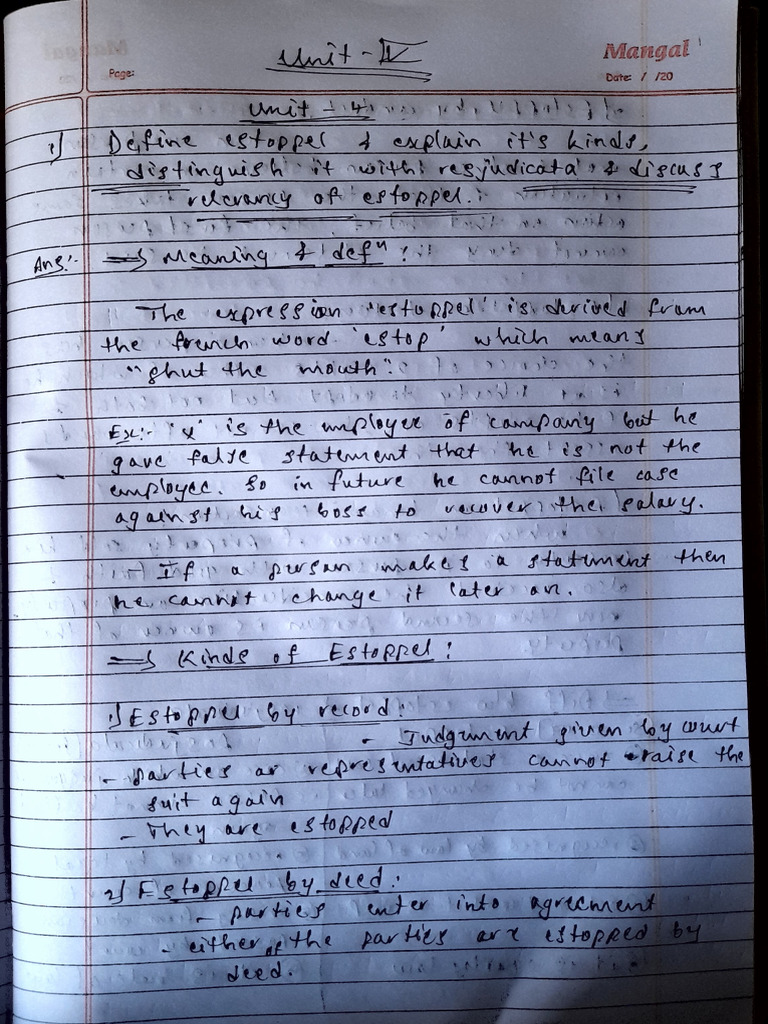 Unit - IV
Mangal
Page:
Date: / /20
Unit - 4
1) Define estoppel & explain it's kinds,
distinguish it with resjudicata & discuss
relevancy of estoppel.
Ans:- => Meaning & defn :
The expression 'estoppel' is derived from
the french word 'estop' which means
"shut the mouth".
Ex:- 'x' is the employee of company but he
gave false statement that he is not the
employee. So in future he cannot file case
against his boss to recover the salary.
- If a person makes a statement then
he cannot change it later on.
=> Kinds of Estoppel :
1) Estoppel by record :
- Judgment given by court
- parties or representatives cannot raise the
suit again
- They are estopped
2) Estoppel by deed :
- parties enter into agreement
- either of the parties are estopped by
deed.